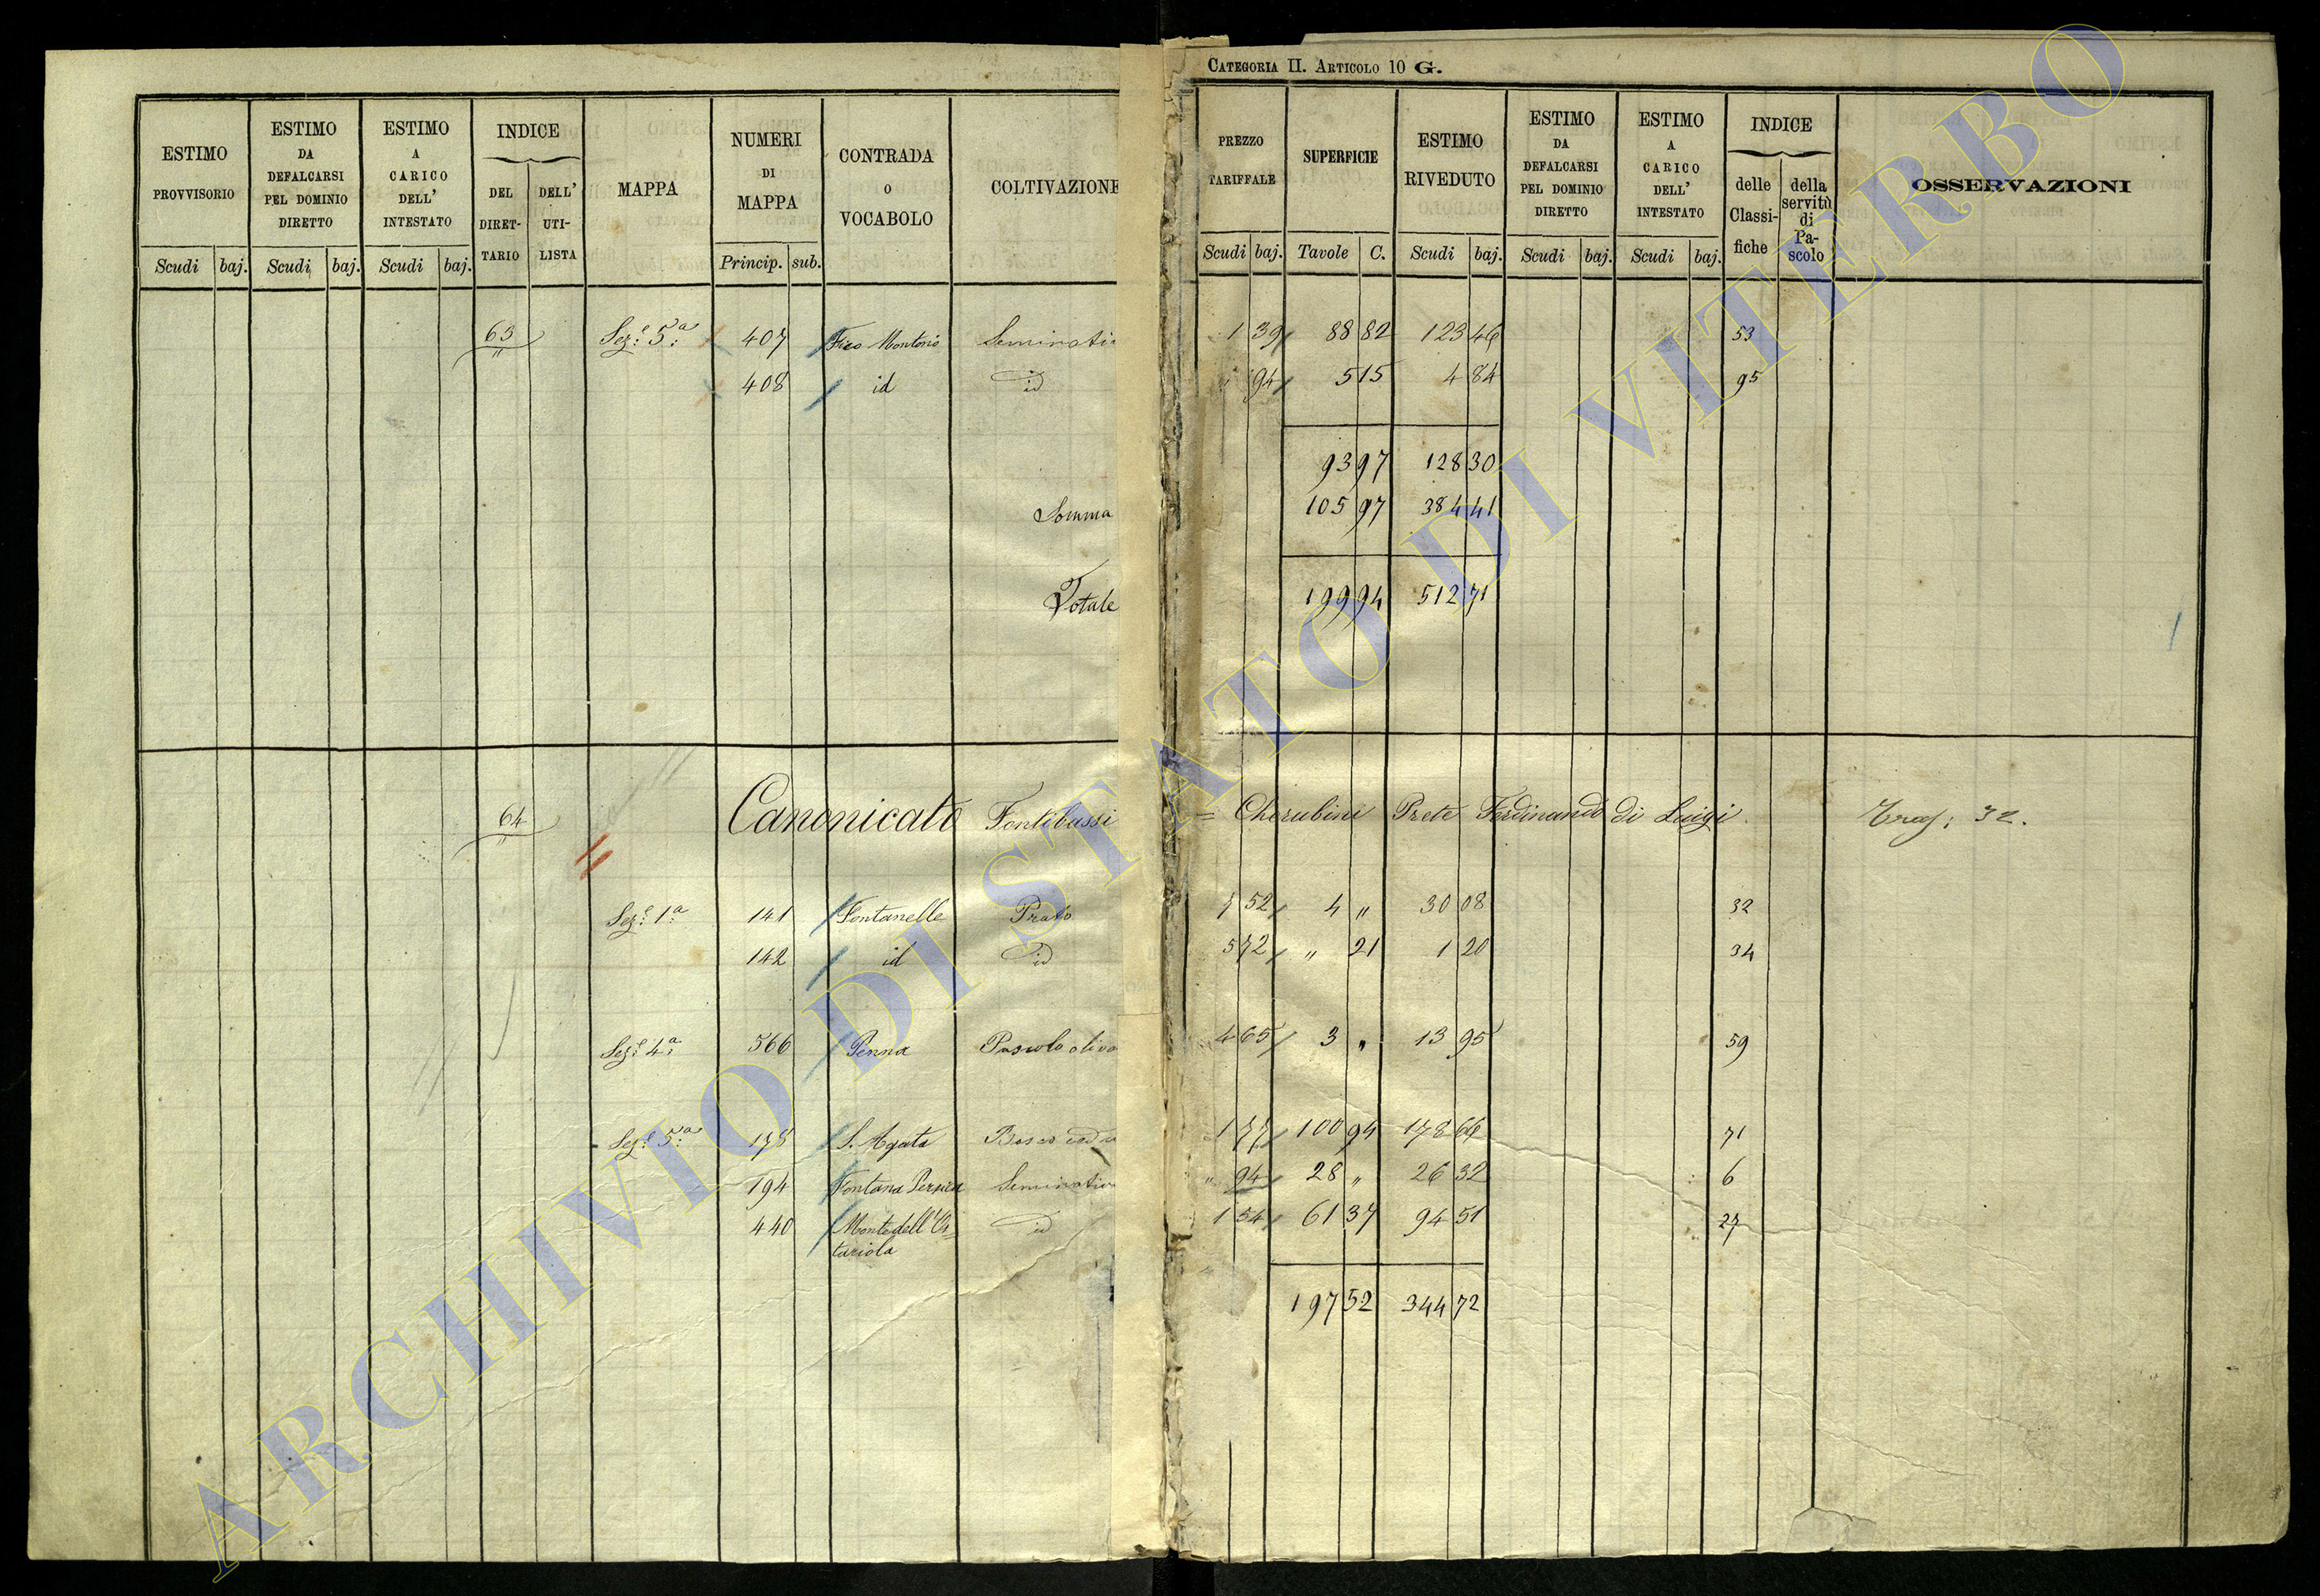 CATEGORIA II. ARTICOLO 10 G.
ESTIMO PROVVISORIO
ESTIMO DA DEFALCARSI PEL DOMINIO DIRETTO
ESTIMO A CARICO DELL' INTESTATO
INDICE
DEL DIRET-TARIO
DELL' UTI-LISTA
MAPPA
NUMERI DI MAPPA
CONTRADA O VOCABOLO
COLTIVAZIONE
PREZZO TARIFFALE
SUPERFICIE
ESTIMO RIVEDUTO
ESTIMO DA DEFALCARSI PEL DOMINIO DIRETTO
ESTIMO A CARICO DELL' INTESTATO
INDICE
delle Classi-fiche
della servitù di Pa-scolo
OSSERVAZIONI
Scudi baj. Scudi baj. Scudi baj. Princip. sub. Scudi baj. Tavole C. Scudi baj. Scudi baj. Scudi baj.
63 Sez.e 5.a 407 Seminativ 1 39 88 82 123 46 53
408 id id " 94 5 15 4 84 95
93 97 128 30
Somma 105 97 384 41
Totale 199 94 512 71
64 Canonicato Fontebassi = Cherubini Prete Ferdinando di Luigi 32.
Sez.e 1.a 141 Fontanelle Prato 52 4 " 30 08 32
142 id id 5 72 " 21 1 20 34
Sez.e 4.a 566 Penna Pascolo oliva 4 65 3 " 13 95 59
Sez.e 5.a 178 S. Agata Bosco ced 1 77 100 94 178 66 71
194 Fontana Persica Seminativo " 94 28 " 26 32 6
440 Monte dell' id 1 54 61 37 94 51 27
tariola
197 52 344 72
ARCHIVIO DI STATO DI VITERBO